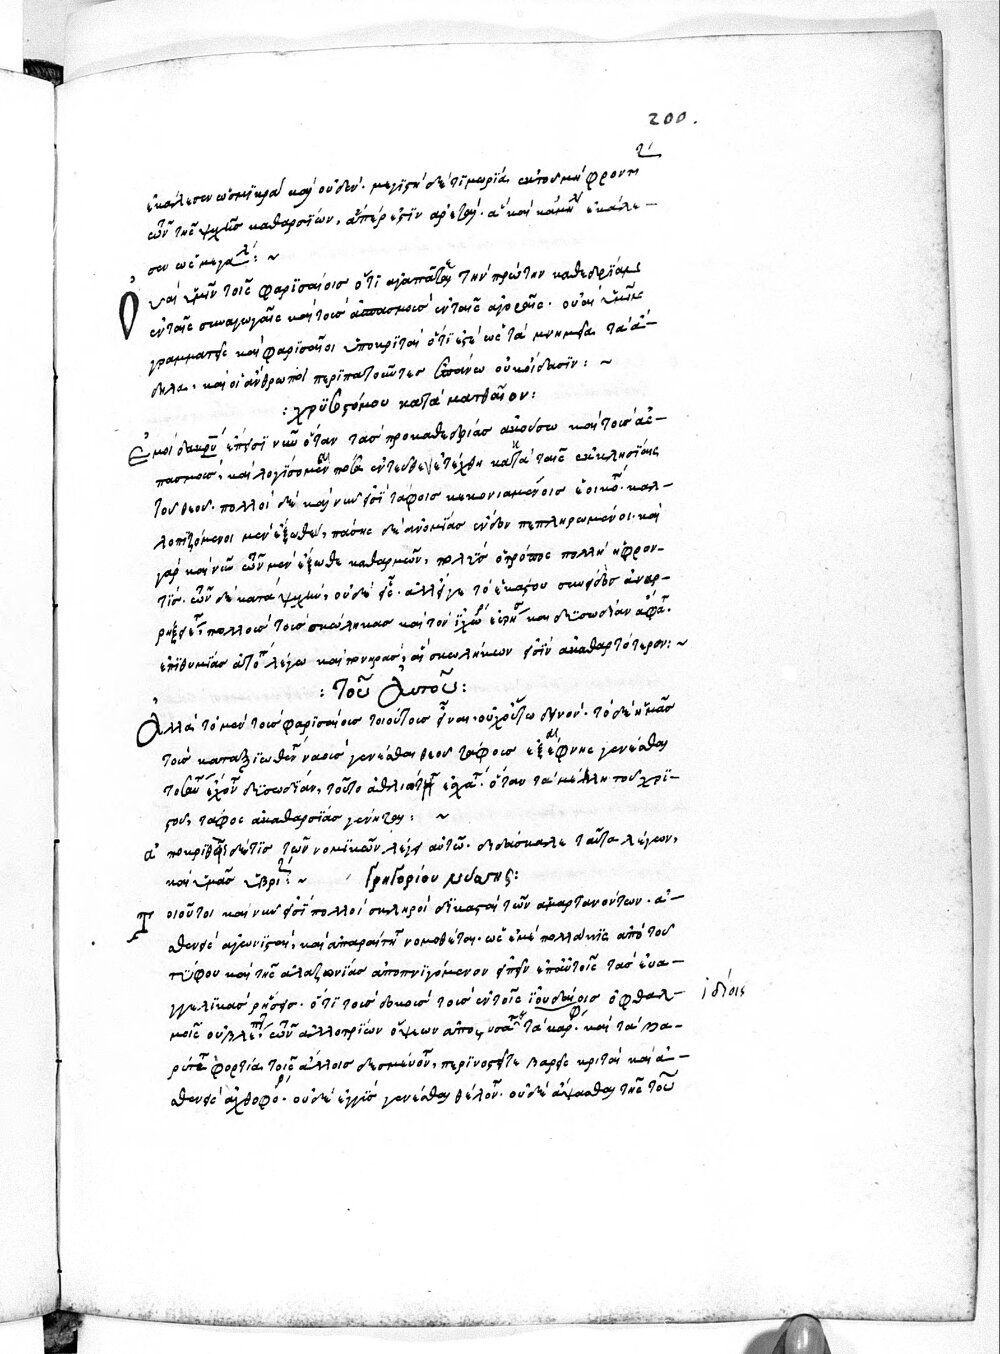 200.
ἐκάλεσεν ὡς μικρὰ καὶ οὐδὲν. μεγίστη δὲ τιμωρία ἐκ τοῦ μὴ φροντι
τῶν τῆς ψυχῆς καθαρσίων, ἅπερ ἐστὶν ἀρετὴ. ἃ καὶ ἐκάλε-
σεν ὡς μεγα
Οὐαὶ ὑμῖν τοῖς φαρισαίοις ὅτι ἀγαπᾶτε τὴν πρώτην καθεδρίαν
ἐν ταῖς συναγωγαῖς καὶ τοὺς ἀσπασμοὺς ἐν ταῖς ἀγοραῖς. οὐαὶ ὑμῖν
γραμματεῖς καὶ φαρισαῖοι ὑποκριταὶ ὅτι ἐστὲ ὡς τὰ μνημεῖα τὰ ἄ-
δηλα. καὶ οἱ ἄνθρωποι περιπατοῦντες ἐπάνω οὐκ οἴδασιν: ~
: χρυσοστόμου κατὰ ματθαῖον:
Ἐμοὶ δακρύειν ἔπεισι νῦν ὅταν τὰς προκαθεδρίας ἀκούσω καὶ τοὺς ἀσ-
πασμοὺς, καὶ λογίσομαι πόσα ἐντεῦθεν ἐτέχθη κακὰ ταῖς ἐκκλησίαις
τοῦ θεοῦ. πολλοὶ δὲ καὶ νῦν εἰσὶ τάφοις κεκονιαμένοις ἐοικότες. καλ-
λωπιζόμενοι μὲν ἔξωθεν, πάσης δὲ ἀνομίας ἔνδον πεπληρωμένοι. καὶ
γὰρ καὶ νῦν τῶν μὲν ἔξωθεν καθαρμῶν, πολὺς ὁ τρόπος πολλὴ ἡ φρον-
τίς. τῶν δὲ κατὰ ψυχὴν, οὐδὲ εἷς. ἀλλ' εἴ γε τὸ ἑκάστου συνειδὸς ἀναρ-
ρήξειε, πολλοὺς τοὺς σκώληκας καὶ τὸν ἰχῶρα εὑρήσει καὶ δυσωδίαν ἄφατον.
ἐπιθυμίας ἀτόπους λέγω καὶ πονηρὰς, αἳ σκωλήκων εἰσὶν ἀκαθαρτότεραι: ~
: Τοῦ Αὐτοῦ:
Ἀλλὰ τὸ μὲν τοὺς φαρισαίους τοιούτους εἶναι οὐχ οὕτω δεινόν. τὸ δὲ ἡμᾶς
τοὺς καταξιωθέντας ναοὺς γενέσθαι θεοῦ τάφους ἐξαίφνης γενέσθαι
τοσαύτην ἔχοντας δυσωδίαν, τοῦτο ἀθλιότης ἐσχάτη. ὅταν τὰ μέλη τοῦ χρι-
στοῦ, τάφος ἀκαθαρσίας γένηται: ~
ἀποκριθεὶς δέ τις τῶν νομικῶν λέγει αὐτῷ. διδάσκαλε ταῦτα λέγων,
καὶ ἡμᾶς ὑβρίζεις: ~ Γρηγορίου νύσσης:
Τοιοῦτοι καὶ νῦν εἰσὶ πολλοὶ σκληροὶ δικασταὶ τῶν ἁμαρτανόντων. ἀ-
σθενεῖς ἀγωνισταὶ, καὶ ἀπαραίτητοι νομοθέται. ὡς ἐμὲ πολλάκις ἀπὸ τοῦ
τύφου καὶ τῆς ἀλαζονίας ἀποπνιγόμενον εἰπεῖν ἐπ' αὐτοῖς τὰς εὐα-
γγελικὰς ῥήσεις. ὅτι τοὺς δοκοὺς τοὺς ἐν τοῖς ἰουδαίοις ὀφθαλ- ἰδίοις
μοῖς οὐ βλέπ τῶν ἀλλοτρίων ὄψεων ἀποξύσαντα τὰ κάρφη. καὶ τὰ βα-
ρύτερα φορτία τοῖς ἄλλοις δεσμεύοντες, περινοεῖτε βαρεῖς κριταὶ καὶ ἀ-
σθενεῖς ἀχθοφόροι. οὐδὲ ἐγγὺς γενέσθαι θέλοντες. οὐδὲ ἅψασθαι τῆς τοῦ